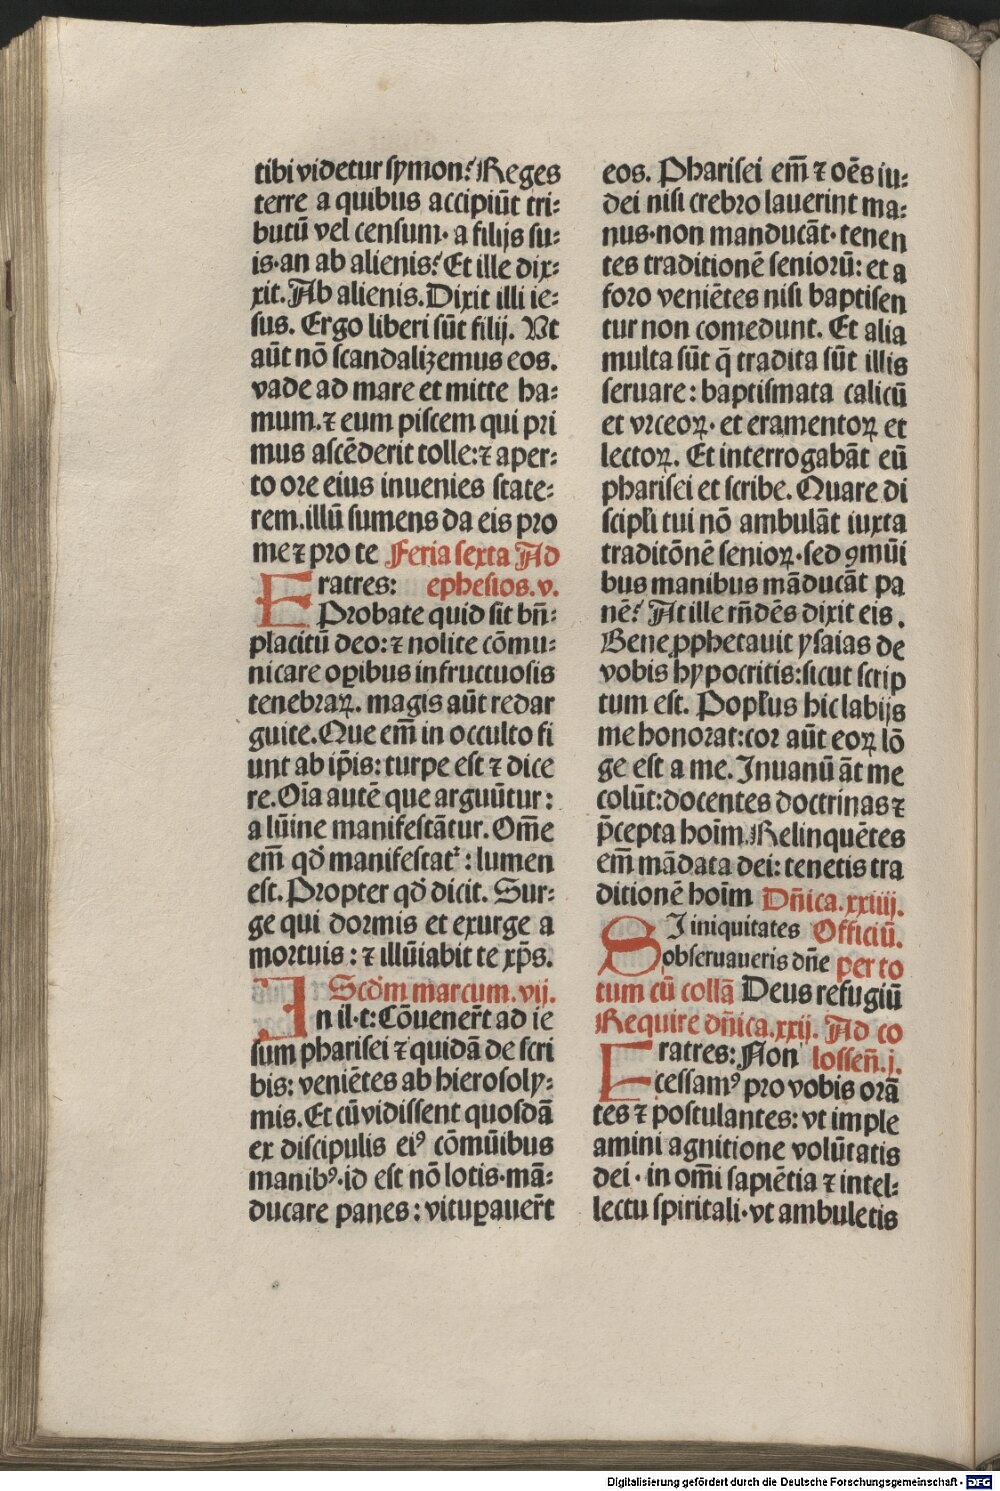 tibi videtur symon? Reges
terre a quibus accipiūt tri:
butū vel censum· a filijs su:
is·an ab alienis? Et ille dix:
xit. Ab alienis. Dixit illi ie:
sus. Ergo liberi sūt filij. Vt
aūt nō scandalizemus eos.
vade ad mare et mitte ha:
mum.⁊ eum piscem qui pri
mus ascēderit tolle:⁊ aper:
to ore eius invenies state:
rem.illū sumens da eis pro
me⁊ pro te Feria sexta Ad
Fratres: ephesios.v.
Probate quid sit bn̄:
placitū deo:⁊ nolite cōmu:
nicare oꝑibus infructuosis
tenebraꝝ. magis aūt redar
guite. Que em̄ in occulto fi
unt ab ip̄is: turpe est ⁊ dice
re. Oīa autē que arguūtur:
a lūine manifestātur. Om̄e
em̄ qd̄ manifestat᷑: lumen
est. Propter qd̄ dicit. Sur:
ge qui dormis et exurge a
mortuis: ⁊ illūiabit te xp̄s.
Scd̄m marcum.vij.
In il·t: Cōvener̄t ad ie
sum pharisei ⁊ quidā de scri
bis: veniētes ab hierosoly:
mis. Et cū vidissent quosdā
ex discipulis eiꝰ cōmūibus
manibꝰ·id est nō lotis·mā:
ducare panes: vituꝑaver̄t
eos. Pharisei em̄ ⁊ oēs iu:
dei nisi crebro laverint ma:
nus·non manducāt·tenen
tes traditionē seniorū: et a
foro veniētes nisi baptisen
tur non comedunt. Et alia
multa sūt q̄ tradita sūt illis
servare: baptismata calicū
et vrceoꝝ· et eramentoꝝ et
lectoꝝ. Et interrogabāt eū
pharisei et scribe. Quare di
scipl̄i tui nō ambulāt iuxta
traditōnē senioꝝ·sed ꝯmūi
bus manibus māducāt pa
nē? At ille rn̄dēs dixit eis.
Bene ꝓphetavit ysaias de
vobis hypocritis:sicut scrip
tum est. Popl̄us hic labijs
me honorat:cor aūt eoꝝ lō
ge est a me. Invanū āt me
colūt:docentes doctrinas ⁊
p̄cepta hoīm. Relinquētes
em̄ mādata dei: tenetis tra
ditionē hoīm Dn̄ica.xxiiij.
Si iniquitates Officiū.
observaveris dn̄e per to
tum cū collā Deus refugiū
Require dn̄ica.xxij. Ad co
Fratres: Non lossen̄.j.
cessamꝰ pro vobis orā
tes ⁊ postulantes: vt imple
amini agnitione volūtatis
dei· in om̄i sapiētia ⁊ intel:
lectu spiritali·vt ambuletis
Digitalisierung gefördert durch die Deutsche Forschungsgemeinschaft - DFG